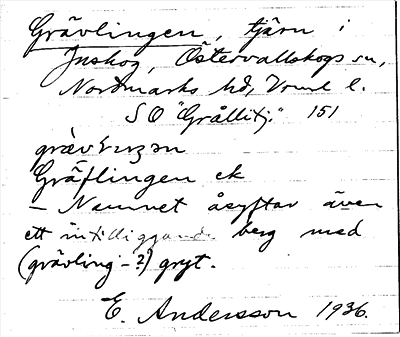 Grävlingen, tjärn i
Inskog, Östervallskogs sn,
Nordmarks hd, Vrml l.
SO "Grållitj." 151
Gräflingen ek
– Namnet åsyftar även
ett intilliggande berg med
(grävling-?) gryt.
E. Andersson 1936.